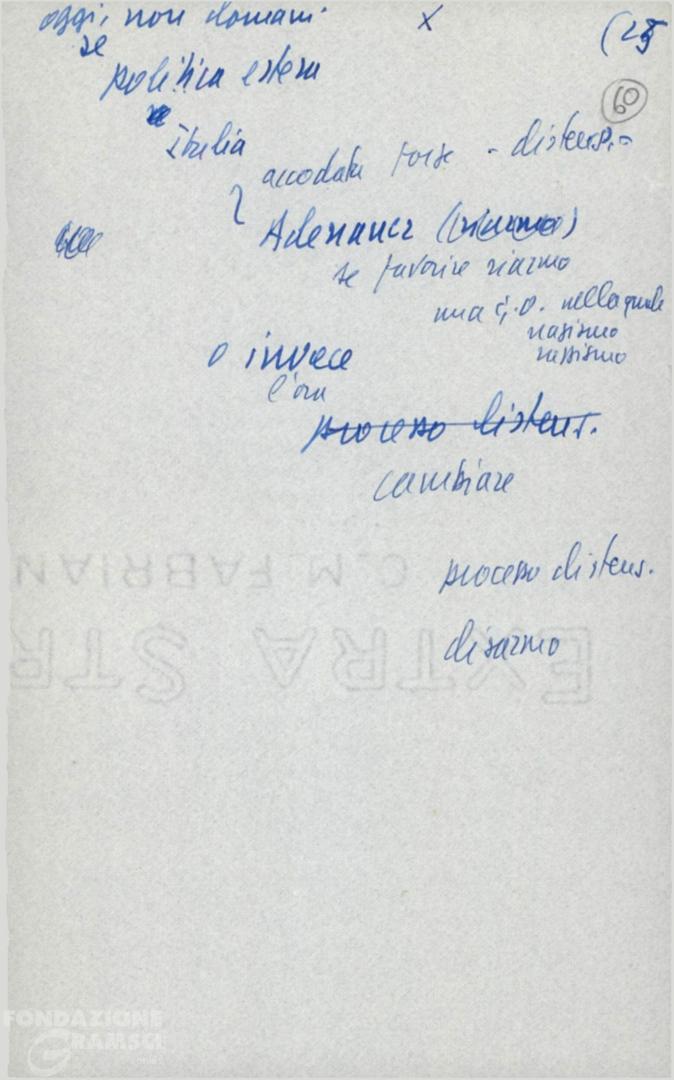 oggi, non domani X (25
se 60
politica estera
Italia
accodata forse - distens.-
Adenauer (riarmo)
se favorire riarmo
una G.O. nella quale
nazismo
razzismo
o invece
l'ora
processo distens.
cambiare
processo distens.
disarmo
C.M. FABRIAN
EXTRA STR
FONDAZIONE
GRAMSCI